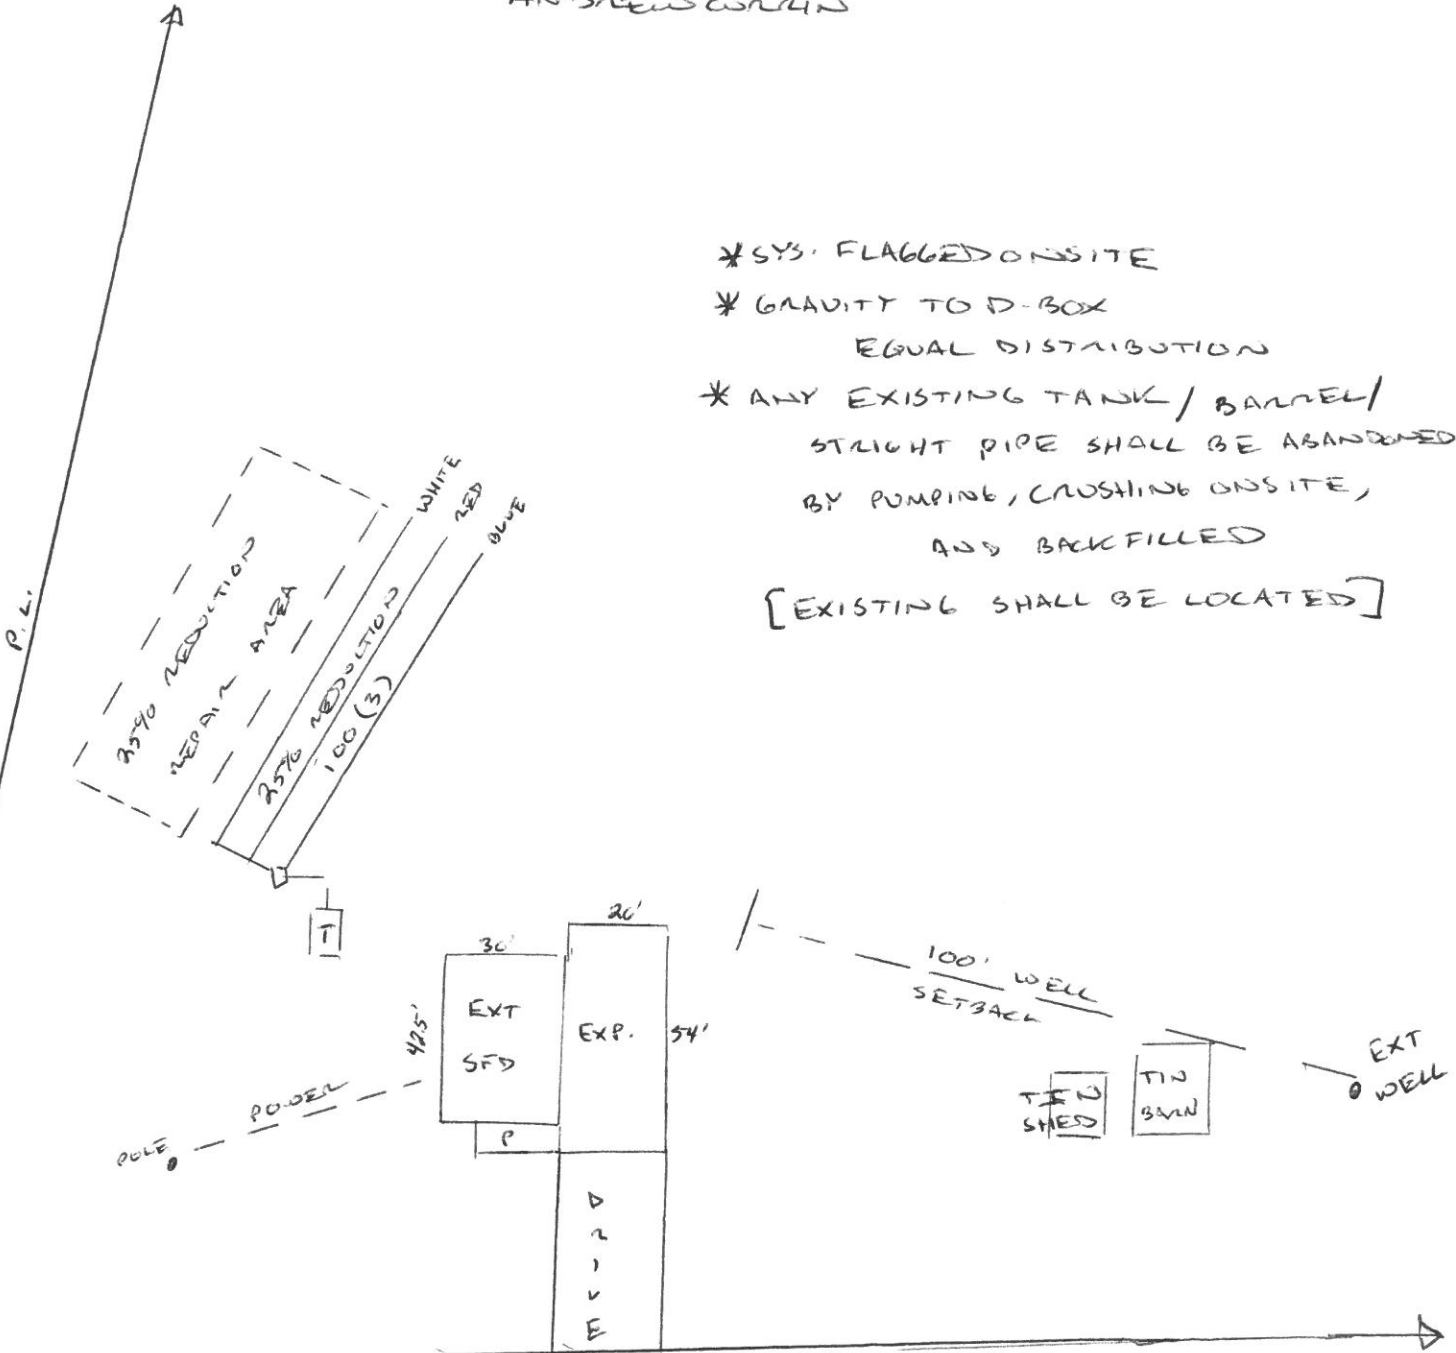 *SYS. FLAGGED ONSITE
* GRAVITY TO D-BOX
EQUAL DISTRIBUTION
* ANY EXISTING TANK / BARREL /
STRIGHT PIPE SHALL BE ABANDONED
BY PUMPING, CRUSHING ONSITE,
AND BACKFILLED
[EXISTING SHALL BE LOCATED]
P.L.
WHITE
RED
BLUE
25% REDUCTION
REPAIR AREA
25% REDUCTION
100 (3)
T
30'
20'
42.5'
EXT
SFD
EXP.
54'
P
POWER
POLE
DRIVE
100' WELL
SETBACK
TIN
SHED
TIN
BARN
EXT
WELL